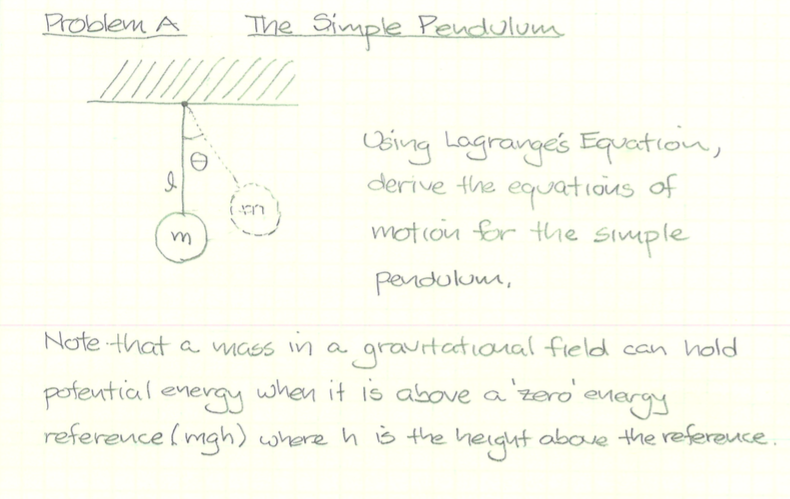 Problem A The Simple Pendulum
Using Lagrange's Equation,
derive the equations of
motion for the simple
pendulum.
θ
l
m
m
Note that a mass in a gravitational field can hold
potential energy when it is above a 'zero' energy
reference (mgh) where h is the height above the reference.